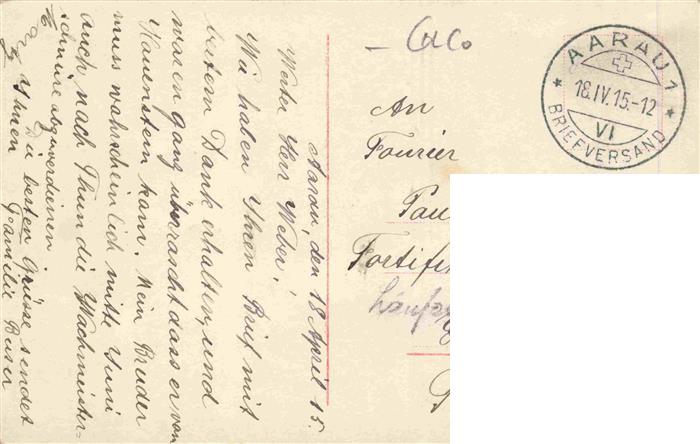 Aarau, den 18 April 15.
Werter Herr Weber!
Wir haben Ihren Brief mit
bestem Dank erhalten und
waren ganz überrascht dass er von
Hauenstein kam. Mein Bruder
muss wahrscheinlich mitte Juni
auch nach Thun die Wachmeister-
schnüre abzuverdienen.
Die besten Grüsse sendet
Ihnen Familie Buser
AARAU 1
18.IV.15.-12
VI
BRIEFVERSAND
An
Fourier
Fortifi